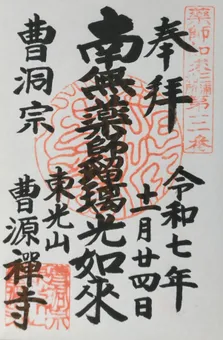 奉拝
令和七年
十一月廿四日
南無薬師瑠璃光如来
曹洞宗
東光山
曹源禅寺